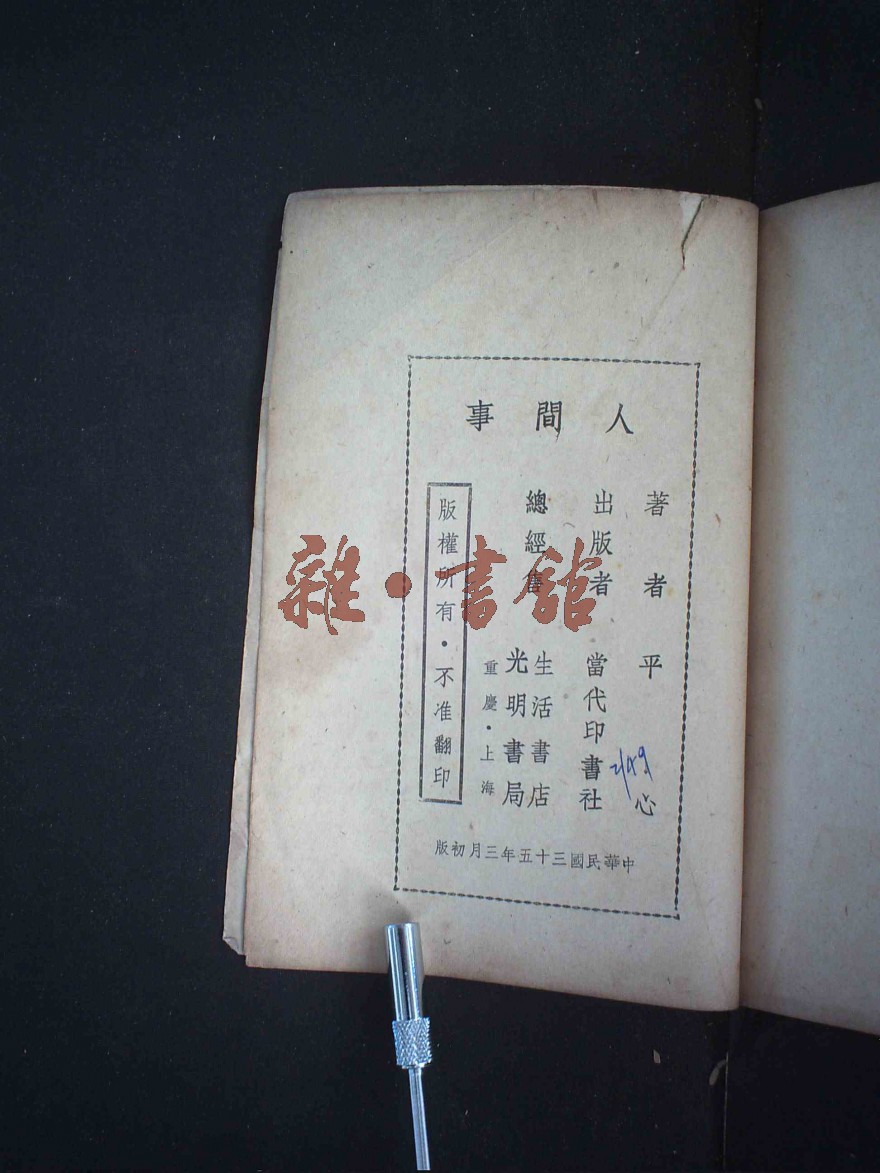 人間事
著者 平心
出版者 當代印書社
總經售 生活書店
光明書局
重慶·上海
版權所有·不准翻印
中華民國三十五年三月初版
雜·書館